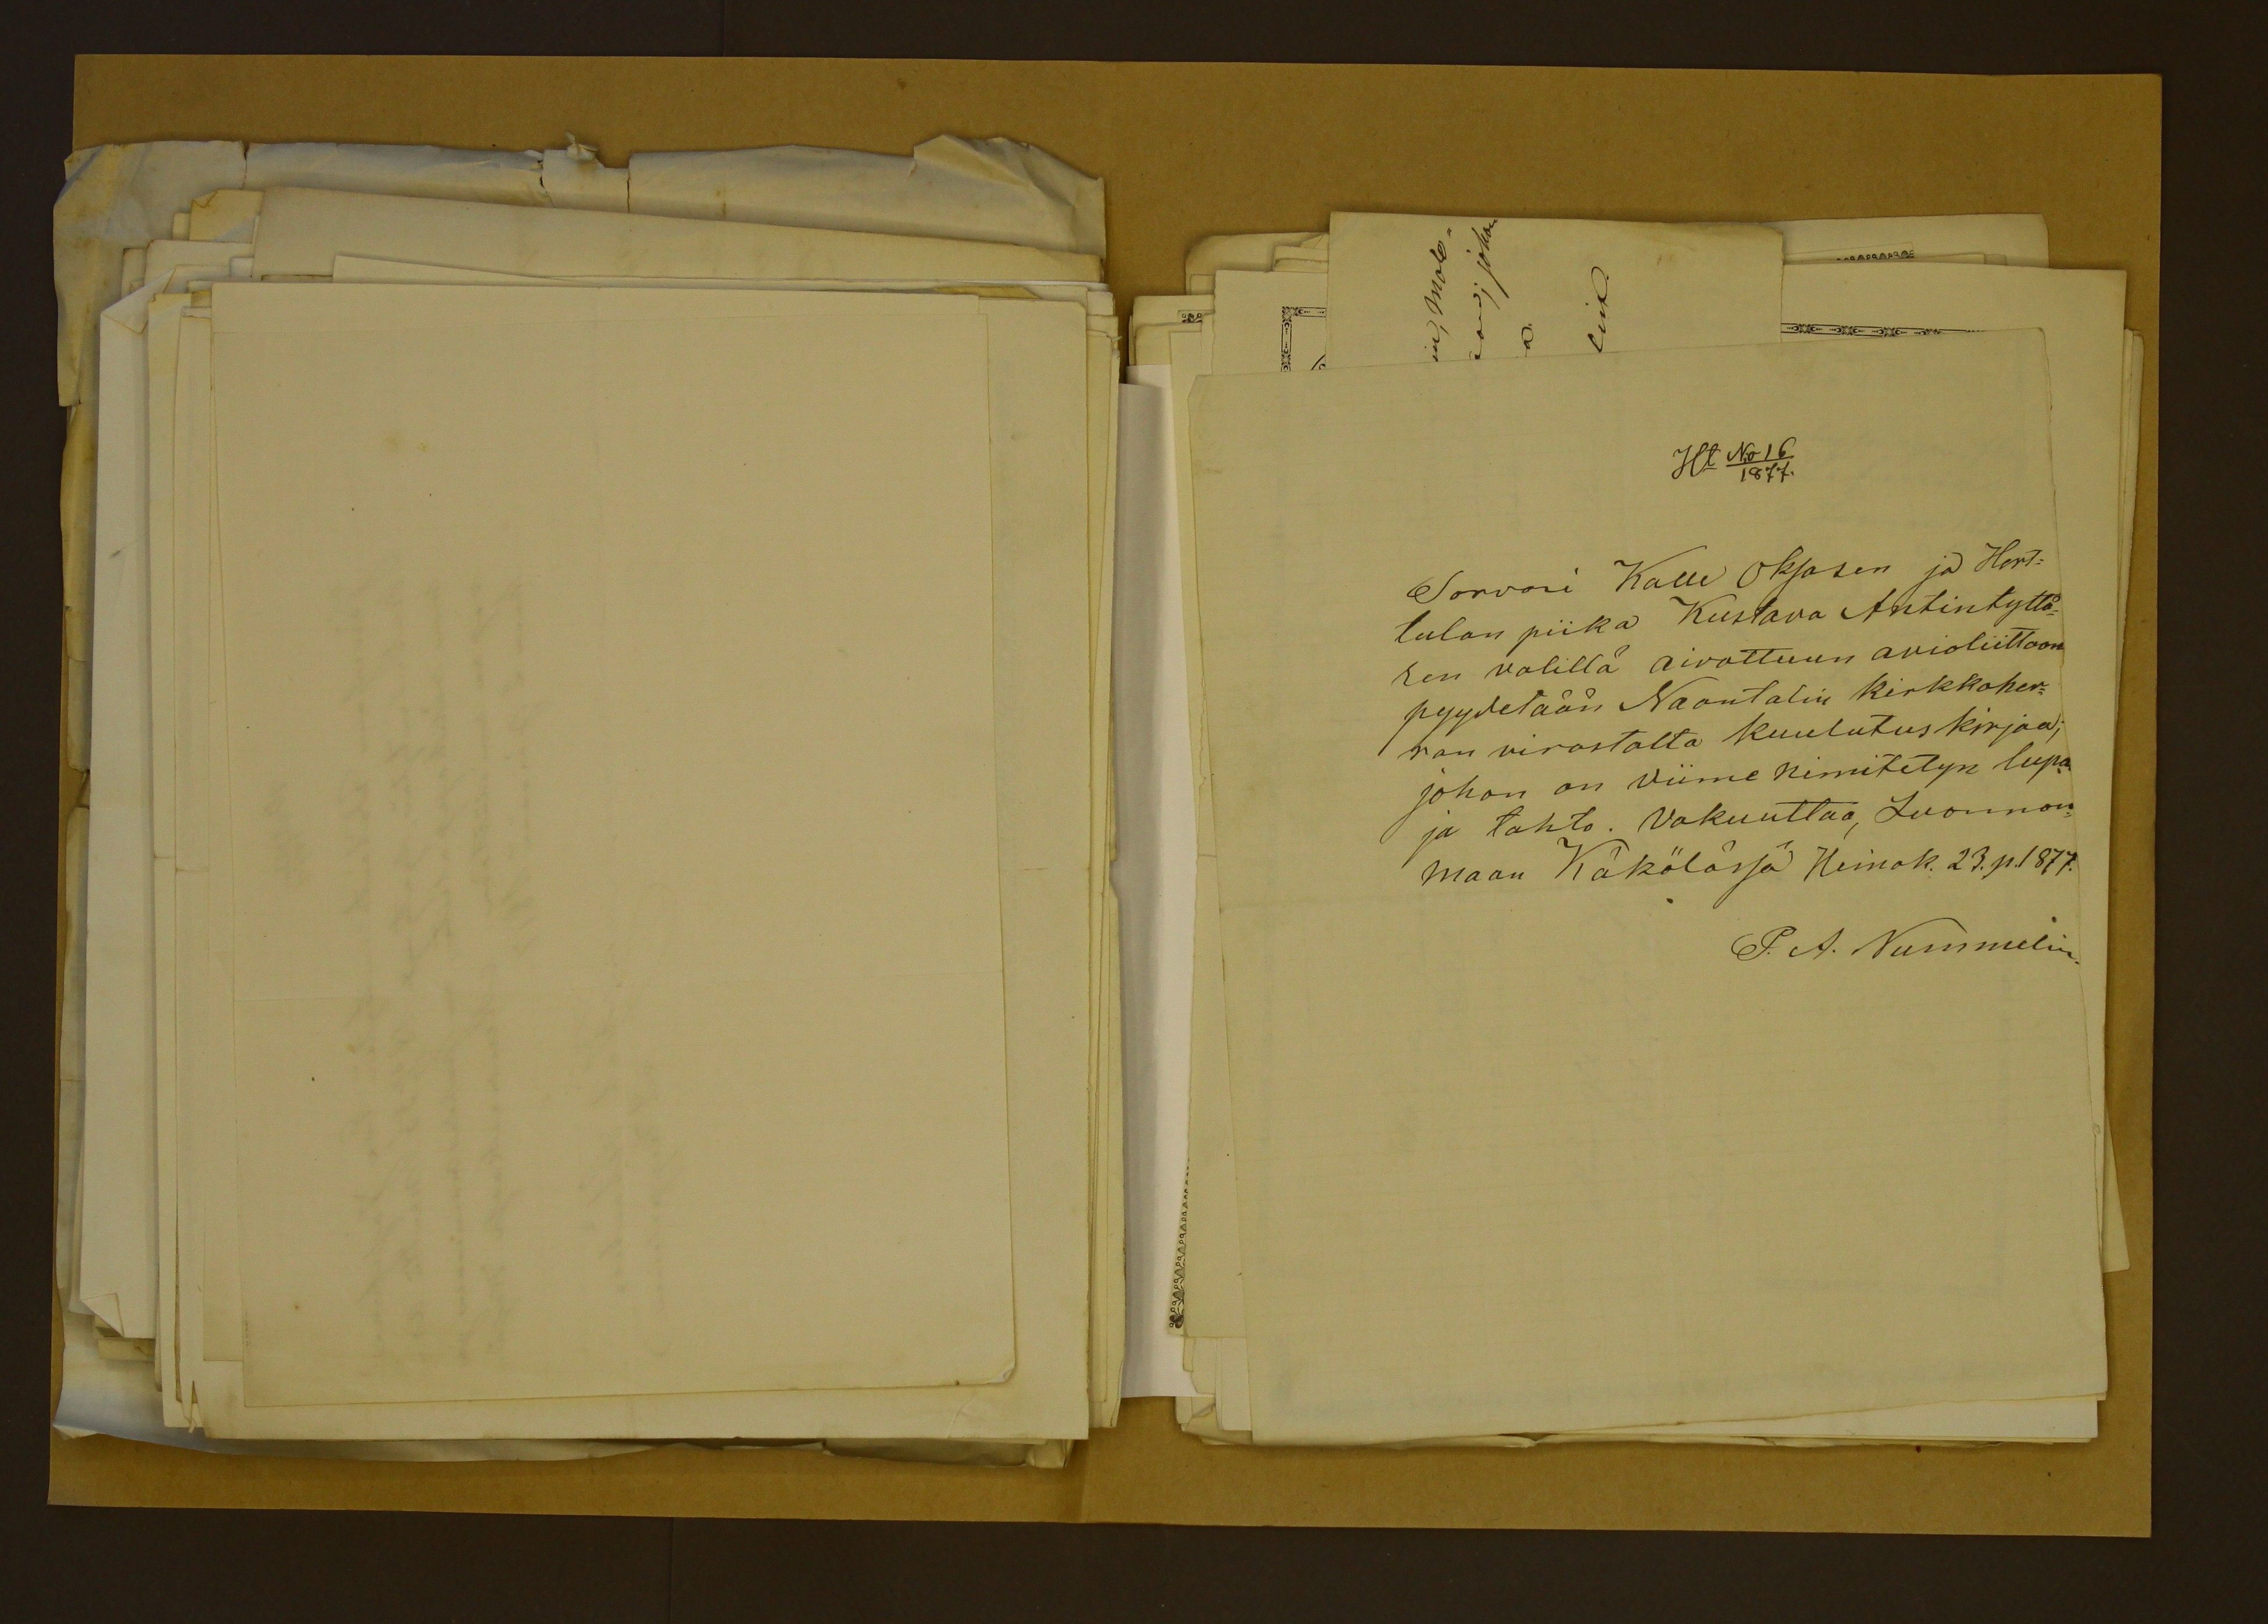 in, Molo-
johon
Ht No 16
1877.
Sorvari Kalle Oksasen ja Hert=
tulan piika Kustava Antintyttä=
ren välillä aivottuun avioliittoon
pyydetään Naantalin kirkkoher=
ran virastalta kuulutuskirjaa;
johon on viime nimitetyn lupa
ja tahto. Vakuuttaa, Luonnon=
maan Käkölässä Heinäk. 23. p. 1877.
P. A. Nummelin.